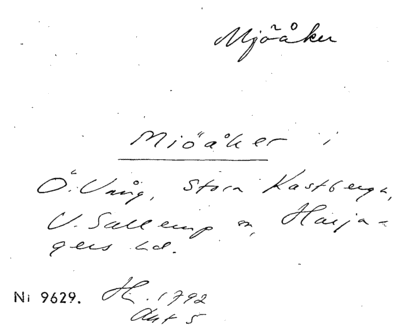 Mjöåker
Miöåker i
Ö. Vång, Stora Kastberga,
V. Sallerup sn, Harja-
gers hd.
Ni 9629. Hh. 1792
Akt 5